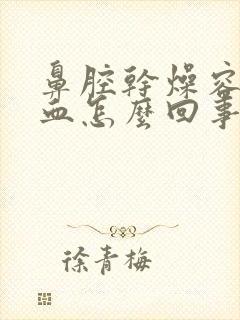 鼻腔幹燥容
血怎麼回事
徐青梅